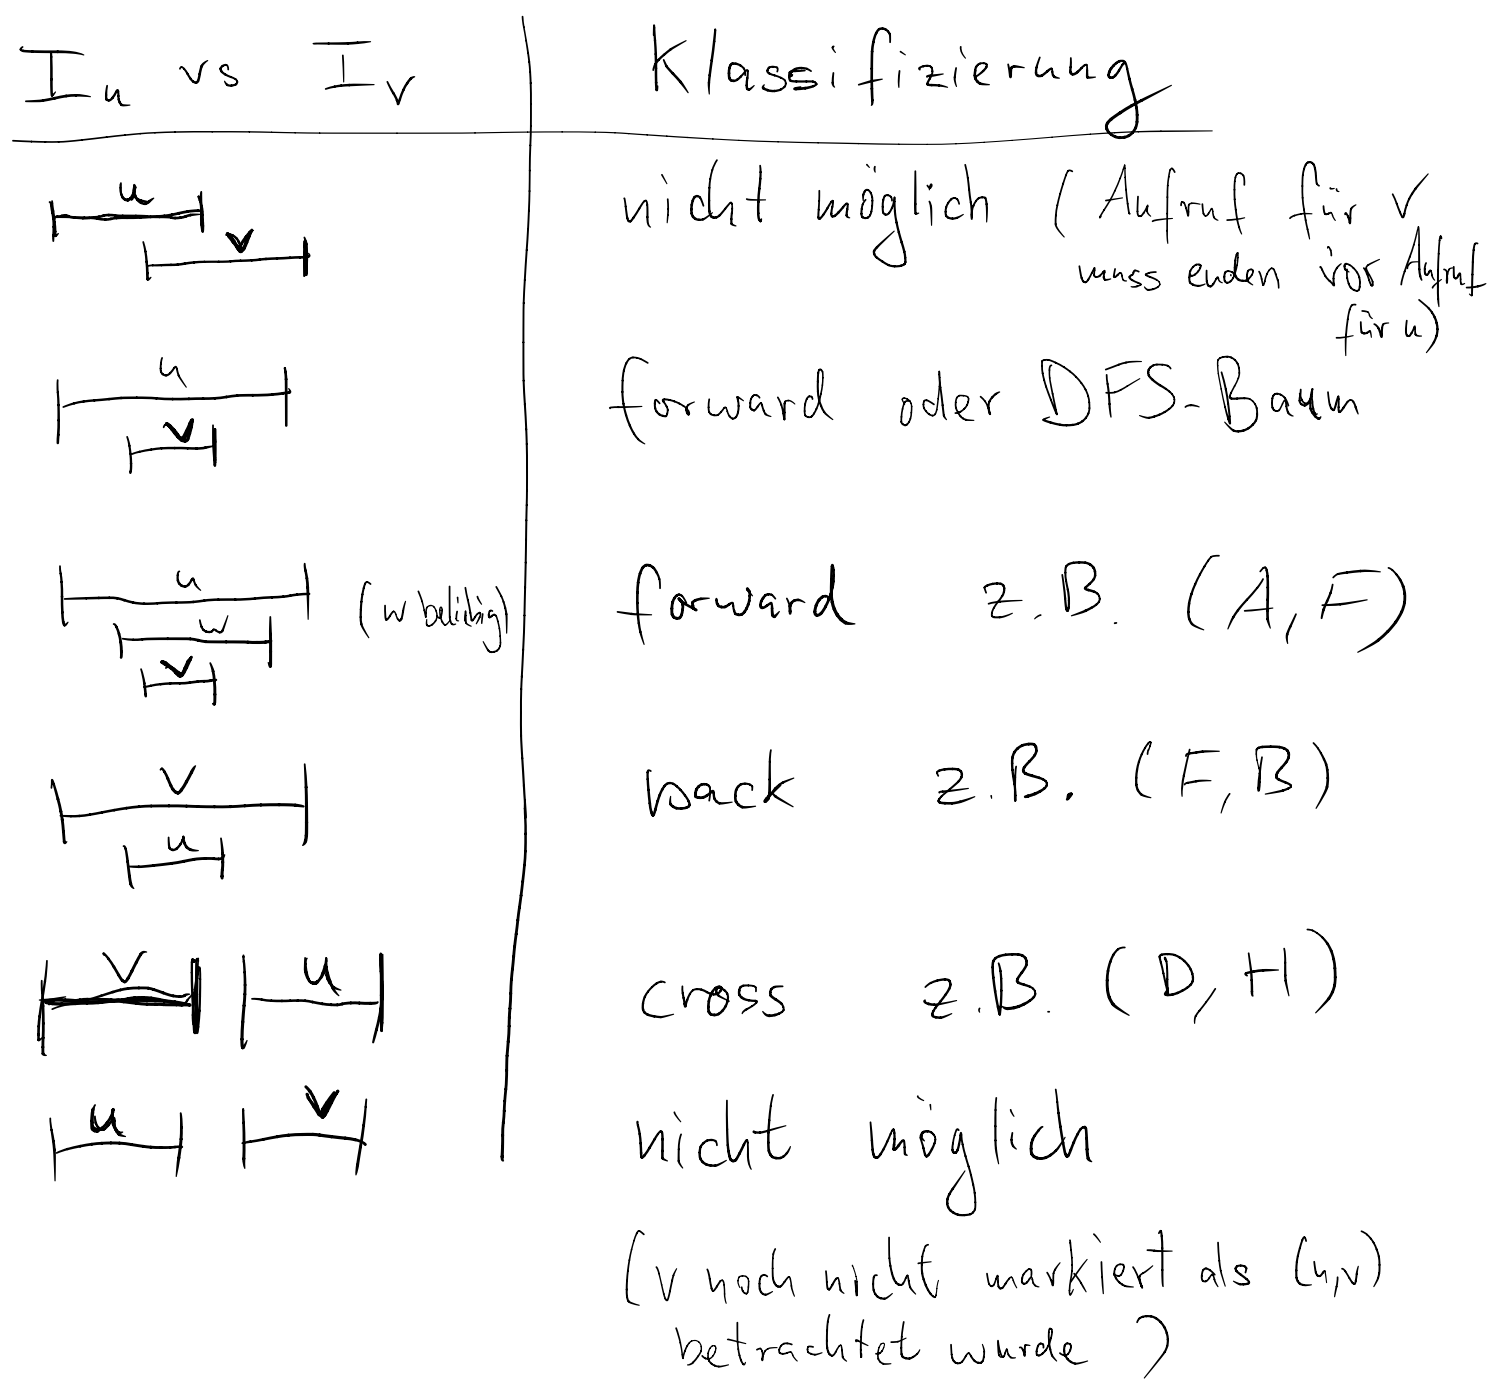 I_u vs I_v Klassifizierung
u nicht möglich ( Aufruf für v
v muss enden vor Aufruf
für u)
u
v forward oder DFS-Baum
u (w beliebig) forward z.B. (A,F)
w
v
v back z.B. (F,B)
u
v u cross z.B. (D,H)
u v nicht möglich
(v noch nicht markiert als (u,v)
betrachtet wurde )